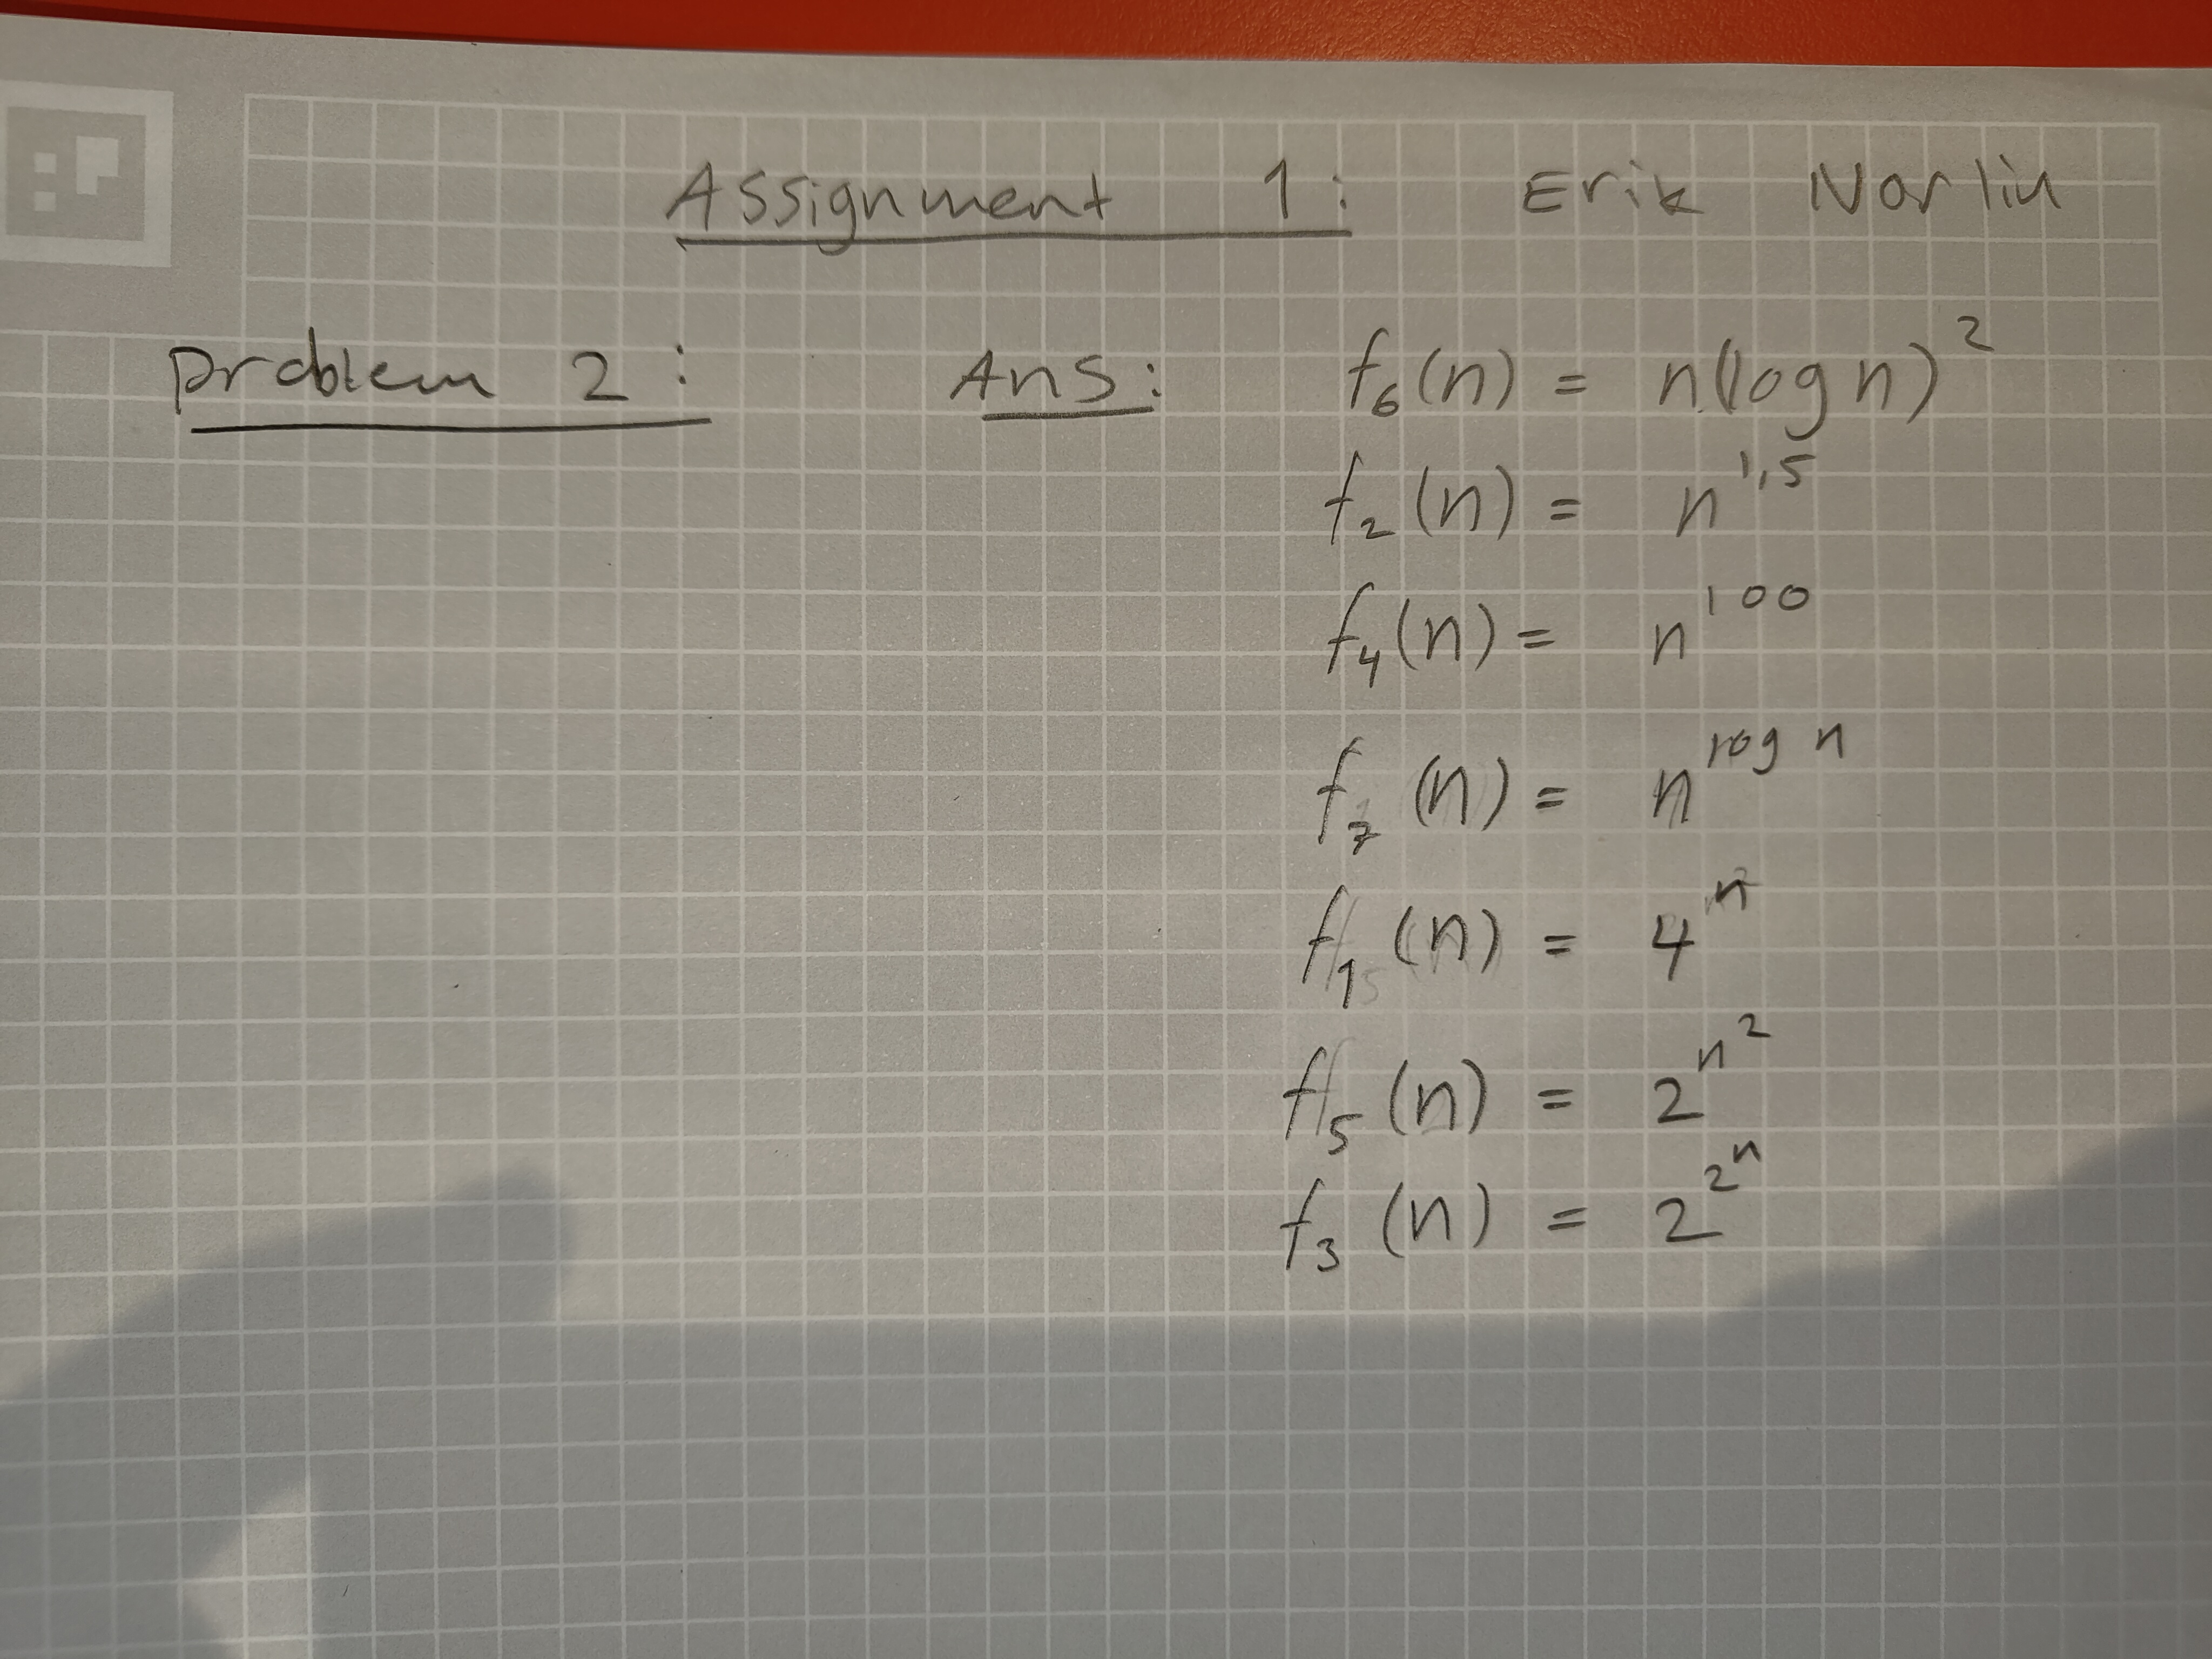 Assignment 1: Erik Norlin
Problem 2: Ans: f₆(n) = n(log n)²
f₂(n) = n^1,5
f₄(n) = n^100
f₇(n) = n^log n
f₁(n) = 4^n
f₅(n) = 2^n^2
f₃(n) = 2^2^n